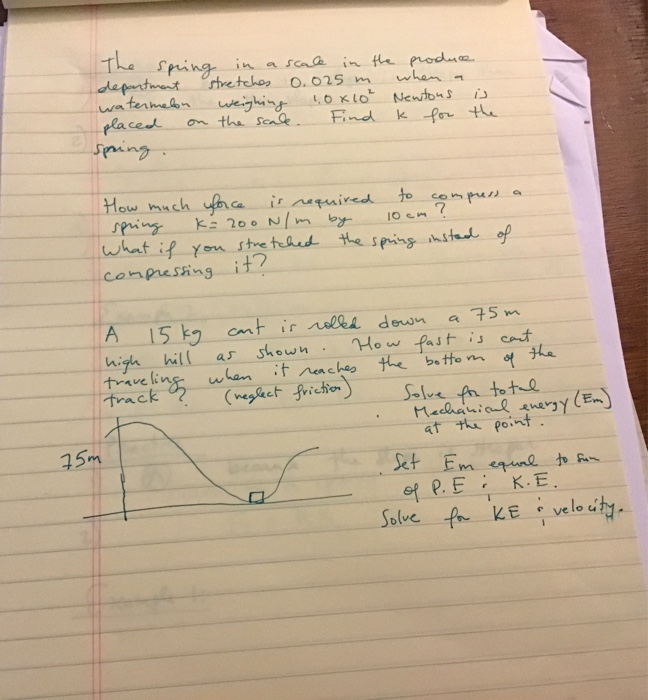 The spring in a scale in the produce
department stretches 0.025 m when a
watermelon weighing 1.0 x 10² Newtons is
placed on the scale. Find k for the
spring.
How much force is required to compress a
spring k = 200 N/m by 10 cm?
What if you stretched the spring instead of
compressing it?
A 15 kg cart is rolled down a 75 m
high hill as shown. How fast is cart
traveling when it reaches the bottom of the
track? (neglect friction)
Solve for total
Mechanical energy (Em)
at the point.
75m
. Set Em equal to sum
of P.E & K.E.
Solve for KE & velocity.